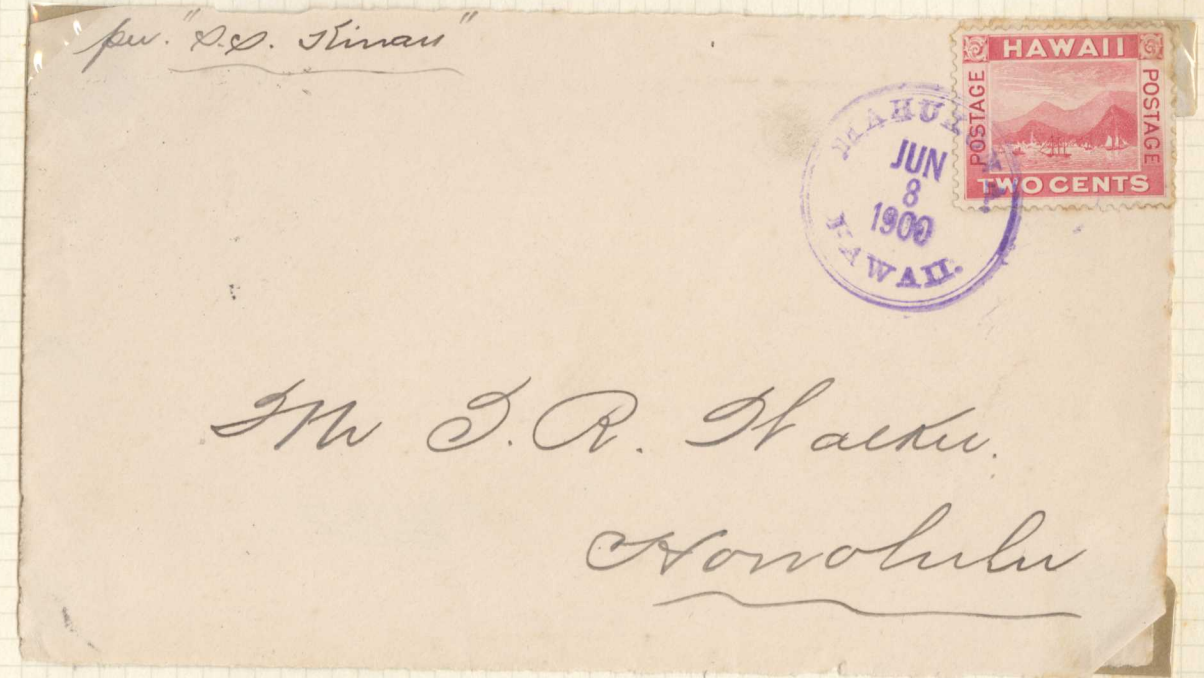 per. "S.S. Kinau"
HAWAII
POSTAGE
POSTAGE
TWO CENTS
MAHUKONA.
JUN
8
1900
HAWAII.
Mr T. R. Walker.
Honolulu